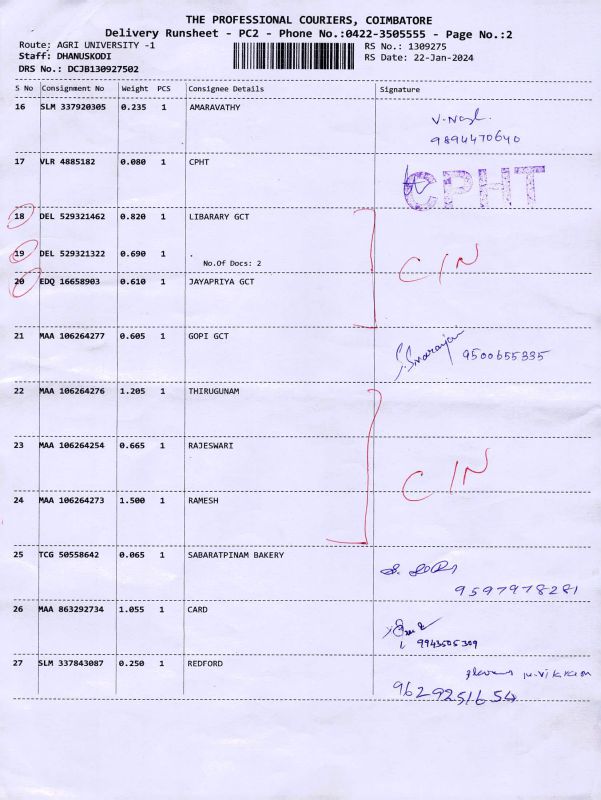 THE PROFESSIONAL COURIERS, COIMBATORE
Delivery Runsheet - PC2 - Phone No.:0422-3505555 - Page No.:2
Route: AGRI UNIVERSITY -1 RS No.: 1309275
Staff: DHANUSKODI RS Date: 22-Jan-2024
DRS No.: DCJB130927502
S No Consignment No Weight PCS Consignee Details Signature
16 SLM 337920305 0.235 1 AMARAVATHY
9894470640
17 VLR 4885182 0.080 1 CPHT
CPHT
18 DEL 529321462 0.820 1 LIBARARY GCT
19 DEL 529321322 0.690 1 .
No.Of Docs: 2
C/N
20 EDQ 16658903 0.610 1 JAYAPRIYA GCT
21 MAA 106264277 0.605 1 GOPI GCT
9500655335
22 MAA 106264276 1.205 1 THIRUGUNAM
23 MAA 106264254 0.665 1 RAJESWARI
C/N
24 MAA 106264273 1.500 1 RAMESH
25 TCG 50558642 0.065 1 SABARATPINAM BAKERY
9597978281
26 MAA 863292734 1.055 1 CARD
9943505309
27 SLM 337843087 0.250 1 REDFORD
9629251654